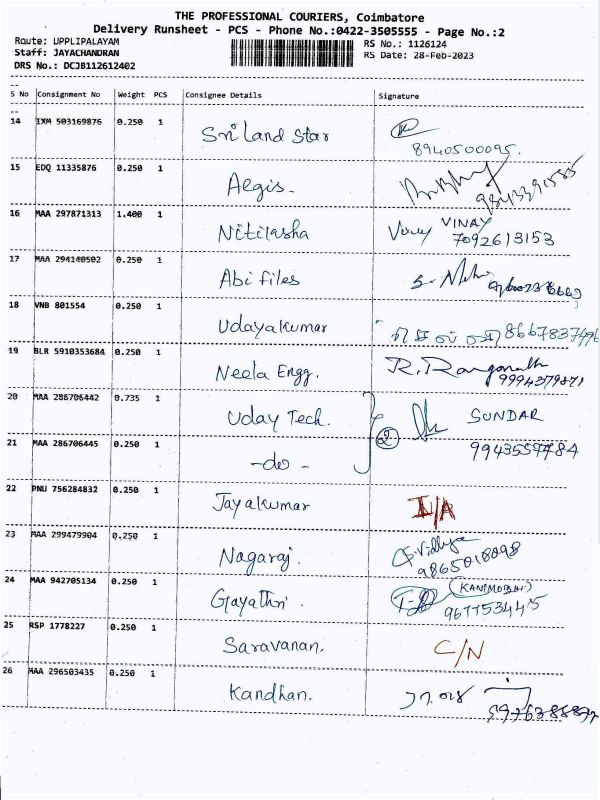 THE PROFESSIONAL COURIERS, Coimbatore
Delivery Runsheet - PCS - Phone No.:0422-3505555 - Page No.:2
Route: UPPLIPALAYAM RS No.: 1126124
Staff: JAYACHANDRAN RS Date: 28-Feb-2023
DRS No.: DCJB112612402
S No Consignment No Weight PCS Consignee Details Signature
14 IXM 503169876 0.250 1 Sri Land Star
8940500095.
15 EDQ 11335876 0.250 1 Aegis-
16 MAA 297871313 1.400 1 Nitilasha VINAY
7092613153
17 MAA 294140502 0.250 1 Abi files
18 VNB 801554 0.250 1 Udayakumar
19 BLR 5910353684 0.250 1 Neela Engg. R. Ranganath
9994379871
20 MAA 286706442 0.735 1 Uday Tech. SUNDAR
21 MAA 286706445 0.250 1 -do-
22 PNU 756284832 0.250 1 Jayakumar I/A
23 MAA 299479904 0.250 1 Nagaraj. Vidhya
9865018098
24 MAA 942705134 0.250 1 Gayathri
25 RSP 1778227 0.250 1 Saravanan. C/N
26 MAA 296503435 0.250 1 Kandhan.